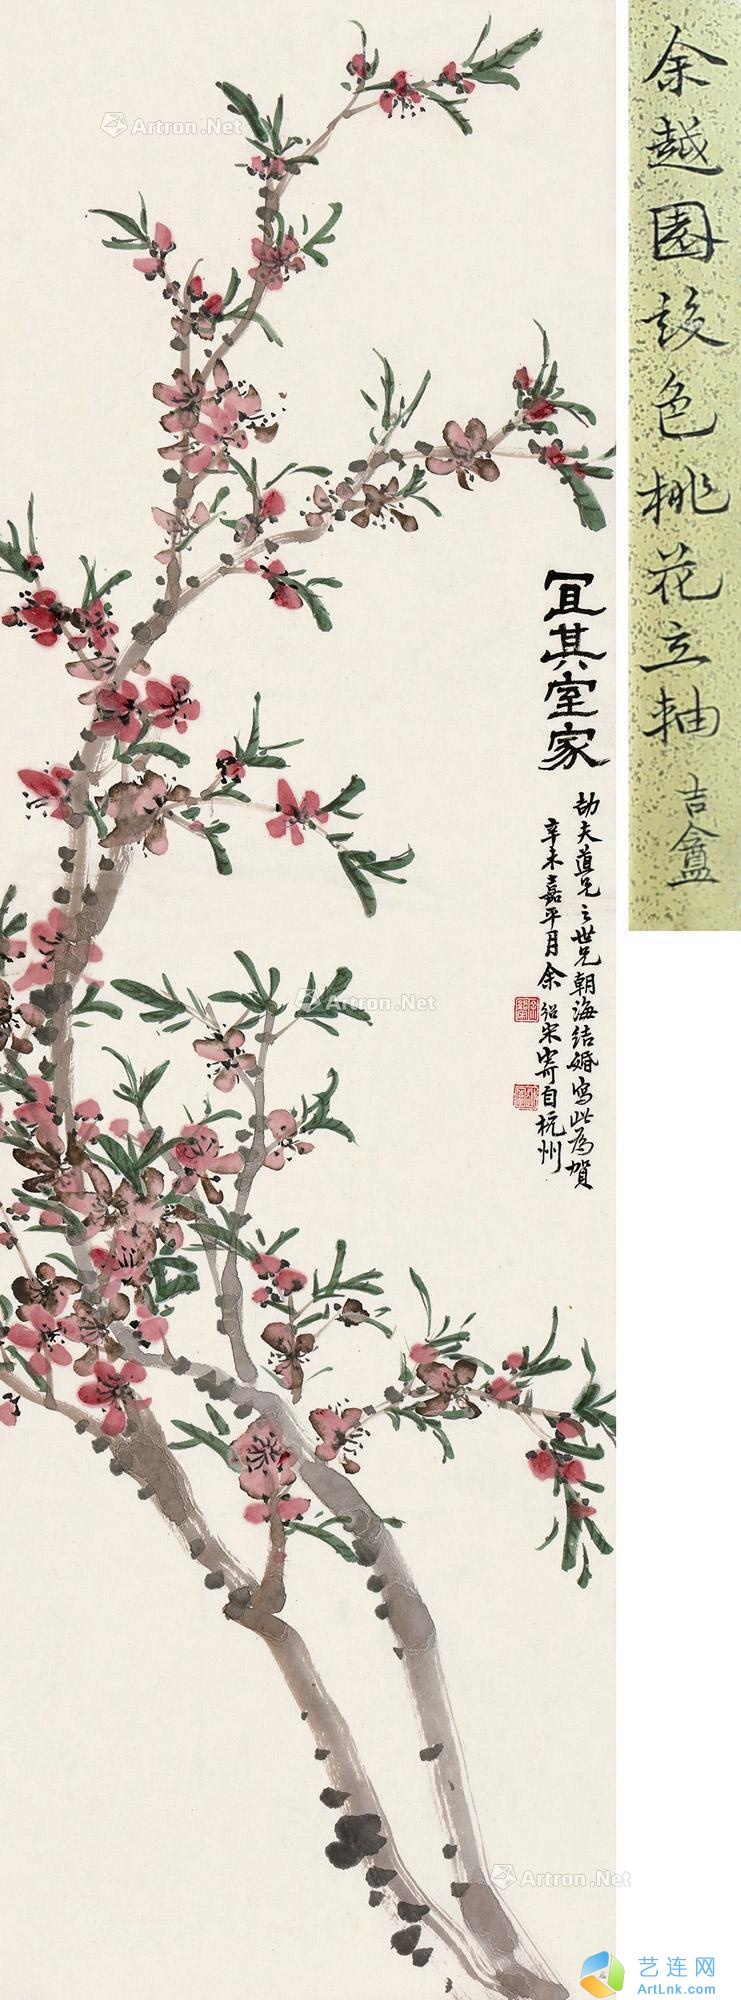 宜其室家
劼夫道兄之世兄朝海结婚写此為贺
辛未嘉平月余绍宋寄自杭州
余越園設色桃花立軸
吉盦
Artron.Net
Artron.Net
Artron.Net
艺连网
ArtLnk.com